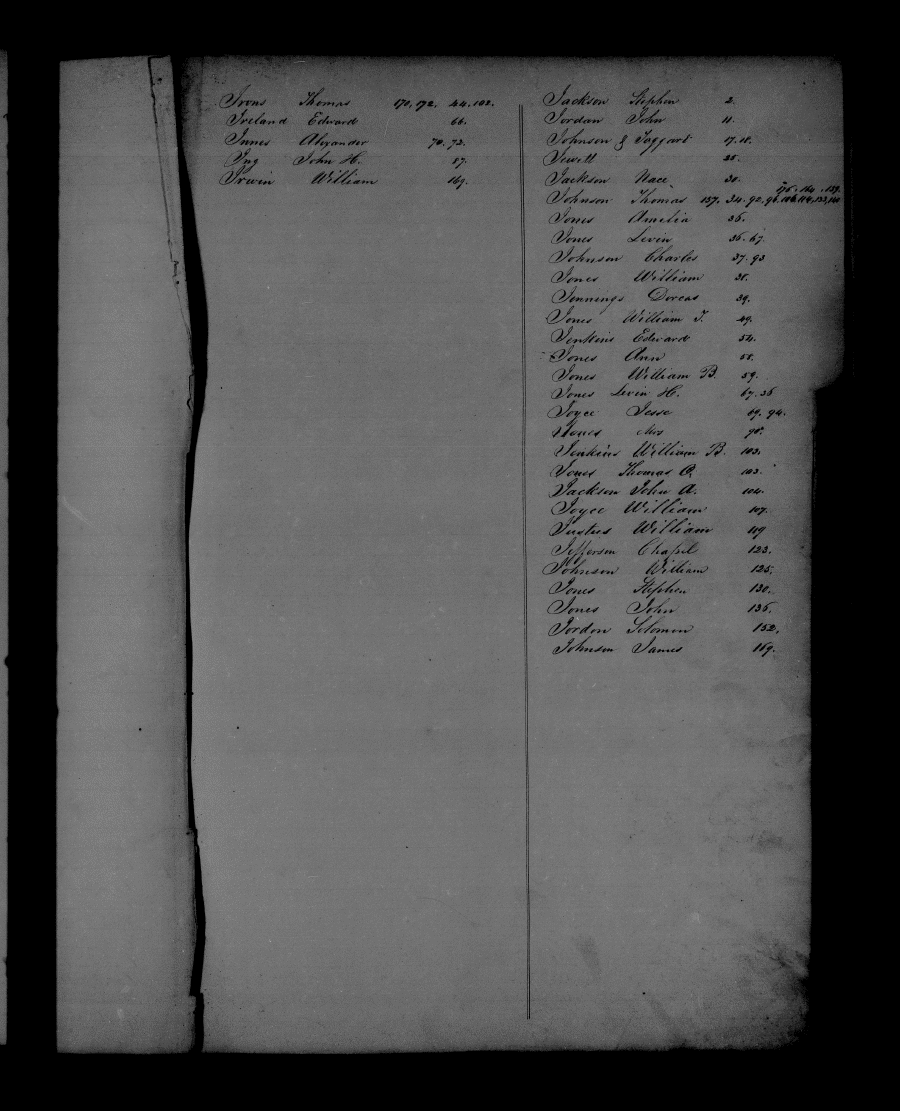 Irons Thomas 170, 172, 44, 102.
Ireland Edward 66.
Innes Alexander 70. 72.
Ing John H. 87.
Irwin William 169.
Jackson Stephen 2.
Jordan John 11.
Johnson & Taggart 17. 18.
Jewett 25.
Jackson Nace 30.
Johnson Thomas 157. 34. 92.
Jones Amelia 36.
Jones Levin 36. 67.
Johnson Charles 37. 93
Jones William 38.
Jennings Dorcas 39.
Jones William T. 49.
Jenkins Edward 54.
Jones Ann 58.
Jones William B. 59.
Jones Levin H. 67. 36
Joyce Jesse 69. 94.
Jones Mrs 90.
Jenkins William B. 103.
Jones Thomas O. 103.
Jackson John A. 104.
Joyce William 107.
Justus William 119
Jefferson Chapel 123.
Johnson William 125.
Jones Stephen 130.
Jones John 136.
Jordon Solomon 152.
Johnson James 169.